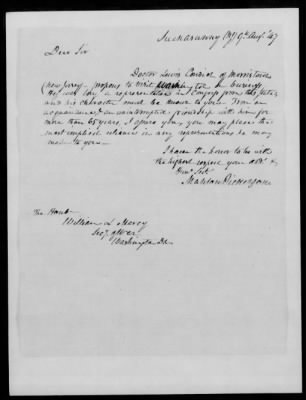 Suckasunny NJ 9th Aug. '47
Dear Sir
Doctor Lewis Condict of Morristown
New Jersey - proposes to visit Washington on business
He was long a representative in Congress from this State,
and his character must be known to you. From an
acquaintance, & an uninterrupted friendship with him for
more than 45 years, I assure you, you may place the
most implicit reliance in any representations he may
make to you -
I have the honor to be with
the highest respect your obt. &
Hum. Svt.
Mahlon Dickerson
The Honb.
William L. Marcy
Secy. of War
Washington